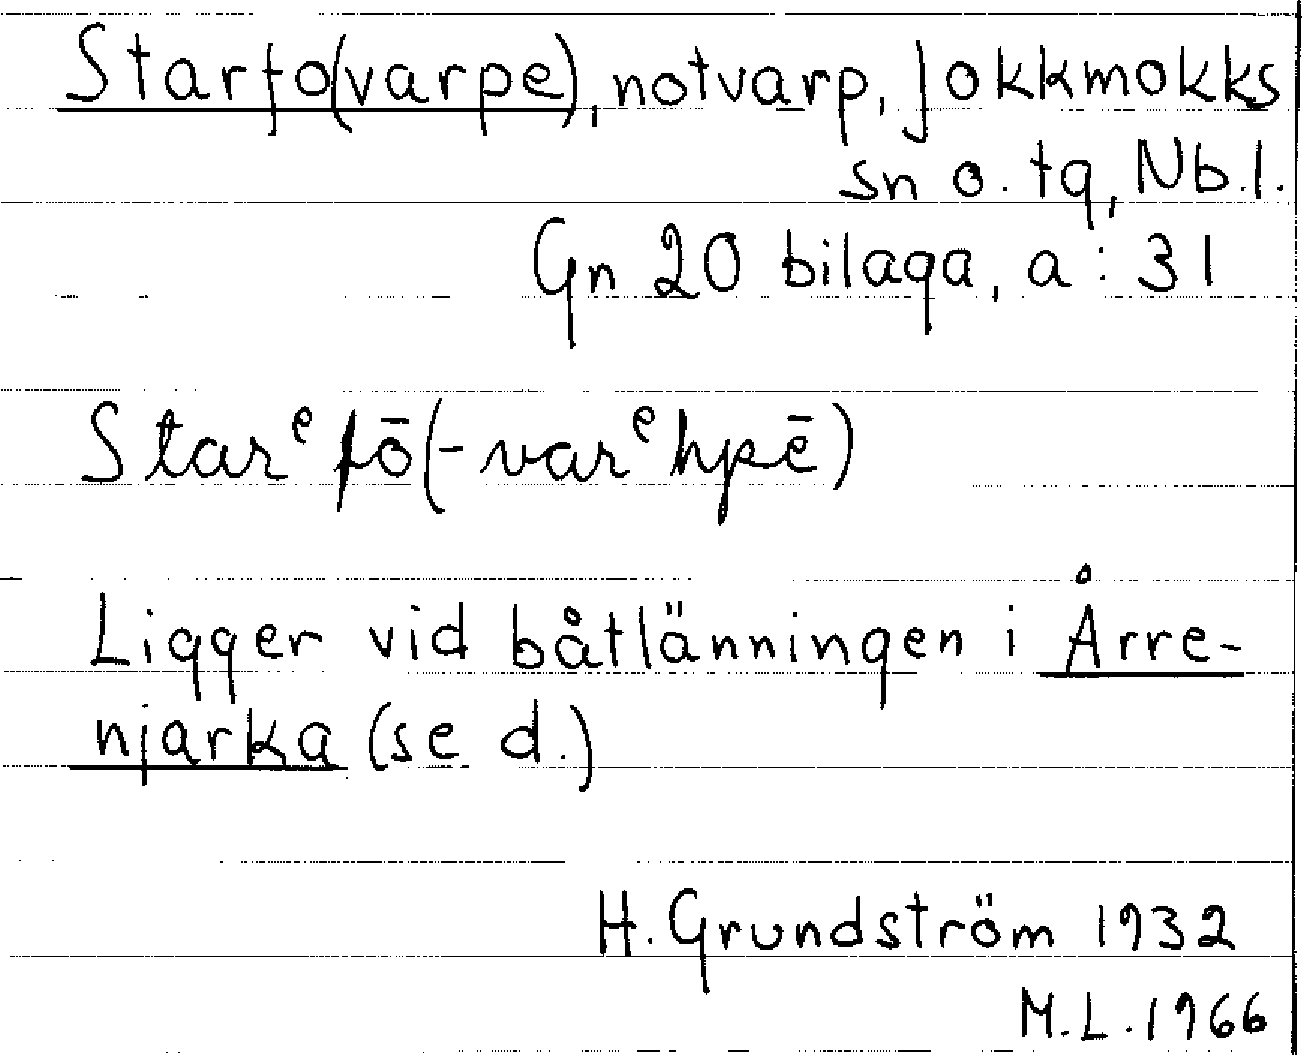 Starfo(varpe), notvarp, Jokkmokks
sn o. tg, Nb.l.
Gn 20 bilaga, a: 31
Starᵉfō(-varᵉhpē)
Ligger vid båtlänningen i Årre-
njarka (se d.)
H. Grundström 1932
M.L. 1966